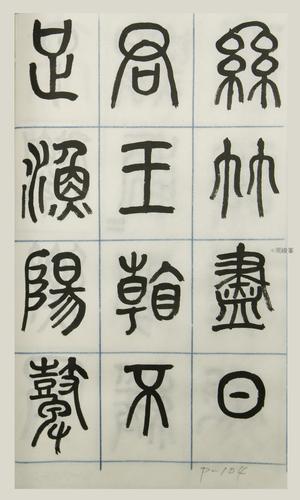 絲竹盡日
君王看不
足漁陽鼙
P-104